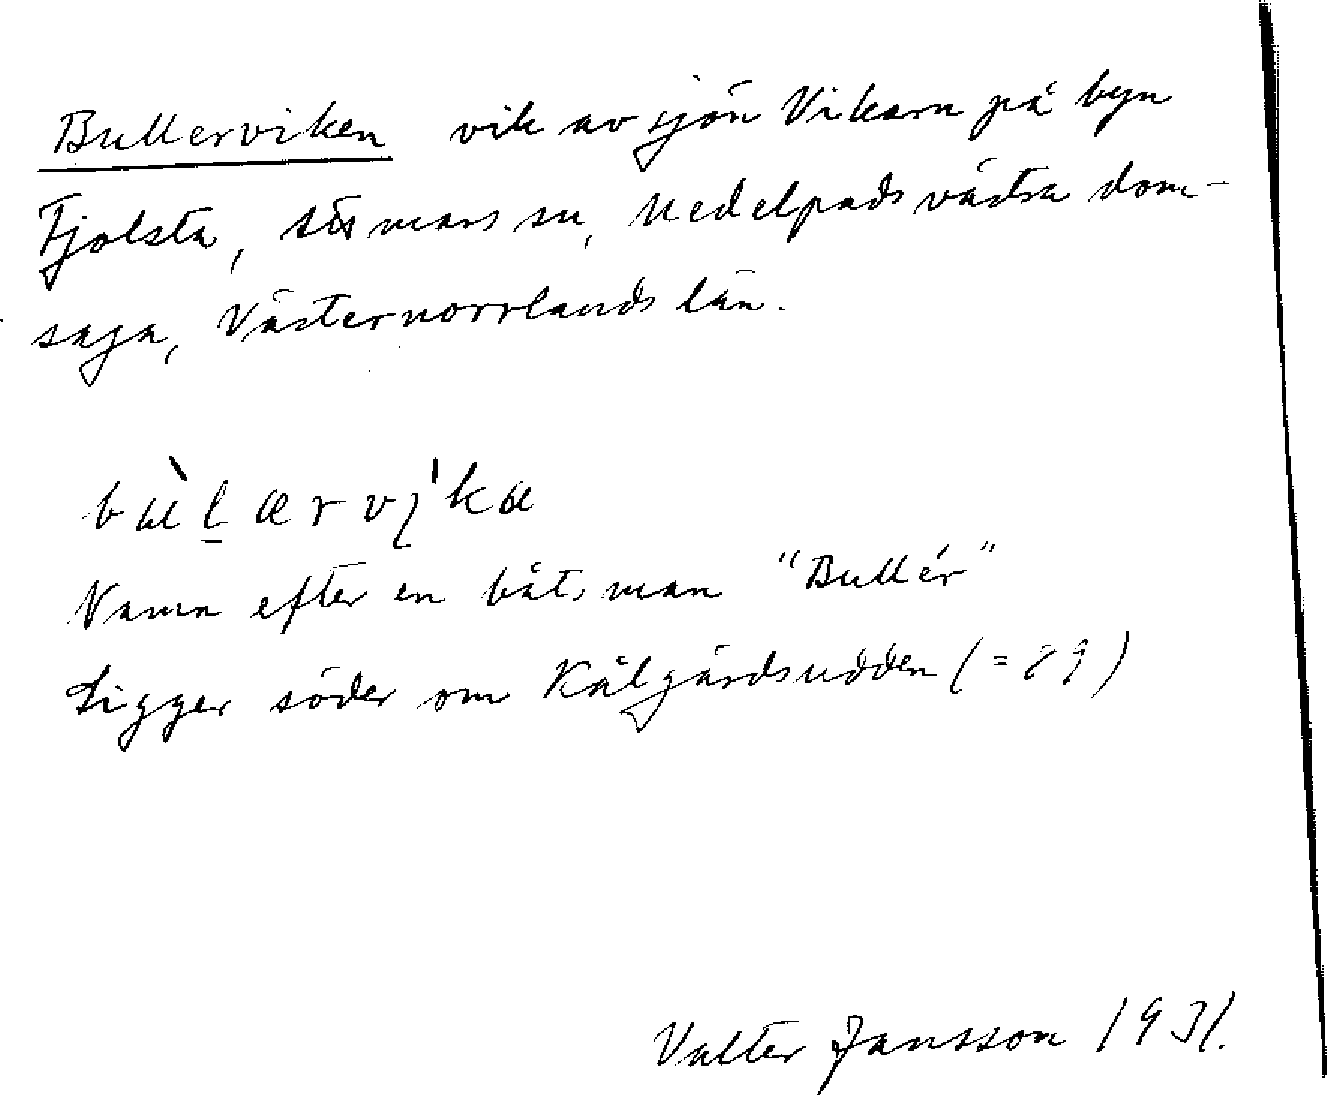 Bullerviken vik av sjön Vikarn på byn
Fjolsta, Tösmans sn, Medelpads västra dom-
saga, Västernorrlands län.
Namn efter en båtsman "Bullér"
Ligger söder om Kålgårdsudden (= 29)
Valter Jansson 1931.